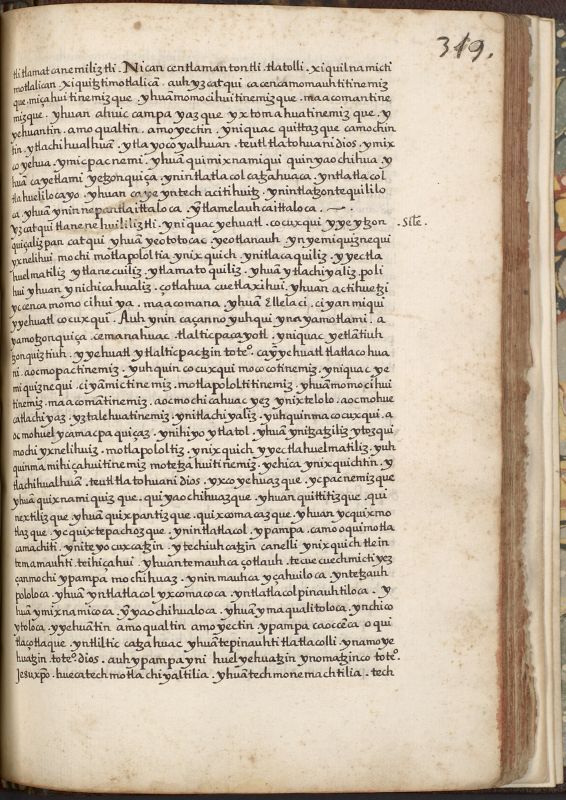 319.
tli tlamatcanemiliztli. Nican centlamantontli. tlatolli. xiquilnamicti
motlalican. xiquiztimotlalicã. auh yz catqui ca cencamomauhtitinemiz
que. miçahuitinemizque. yhuãmomocihuitinemizque. maacomantine
mizque. yhuan ahuic campa yazque yxtomahuatinemizque. y
yehuantin. amo qualtin. amo yectin. yniquac quittazque camochin
tin. ytlachihualhuã. ytlayocoyalhuan. teutl tlatohuani dios. ymix
coyehua. ymicpac nemi. yhuã quimixnamiqui quinyaochihua y
huã cayetlami yetzonquiça. ynintlatlacolcatzahuaca. yntlatlacol
tlahuelilocayo. yhuan caye yntech acitihuitz. ynintlatzontequililo
ca. yhuã ynin nepantla ittaloca. ỹtlamelauhcaittaloca.
yz catqui tlanenehuililiztli. yniquac yehuatl. cocuxqui yye ytzon .Sile.
quiçalizpan catqui yhuã yeototocac yeotlanauh. ynyemiquiznequi
yxnelihui mochi motlapololtia ynixquich. ynitlacaquiliz. yyectla
huelmatiliz. ytlanecuiliz. ytlamatoquiliz. yhuã ytlachiyaliz. poli
hui yhuan ynichicahualiz. çotlahua cuetlaxihui. yhuan actihuetzi
yccenca momocihui ya. maacomana. yhuã Ellelaci. ciyanmiqui
yyehuatl cocuxqui. Auh ynin caçanno yuhqui ynayamotlami. a
yamotzonquiça. cemanahuac. tlalticpacayotl. yniquac yetlãtiuh
tzonquiztiuh. yyehuatl ytlalticpactzin toteº. caỹyehuatl tlatlacohua
ni. aocmopactinemiz. yuhquin cocuxqui mococotinemiz. yniquac ye
miquiznequi. ciyãmictinemiz. motlapololtitinemiz. yhuãmomocihui
tinemiz. maacomãtinemiz. aocmo chicahuac yez ynixtelolo. aocmohue
catlachiyaz. yztalehuatinemiz. ynitlachiyaliz. yuhquinma cocuxqui. a
ocmohuel ycamacpa quiçaz. ynihiyo ytlatol. yhuã ynitzatziliz ytozqui
mochi yxnelihuiz. motlapololtiz. ynixquich yyectlahuelmatiliz. yuh
quinma mihiçahuitinemiz motetzahuitinemiz. yehica ynixquichtin. y
tlachihualhuã. teutl tlatohuani dios. yxcoyehuazque. ycpacnemizque
yhuã quixnamiquizque. quiyaochihuazque. yhuan quittitizque. qui
nextilizque. yhuã quixpantizque. quixcomacazque. yhuan ycquixmo
tlazque. ycquixtepachozque. ynintlatlacol. ypampa. camo oquimotla
camachiti. yniteyocuxcatzin. ytechiuhcatzin canelli ynixquich tlein
temamauhti. teihiçahui. yhuan temauhca çotlauh. tecuecuechmictiyez
çanmochi ypampa mochihuaz. ynin mauhca yçahuiloca. yntetzauh
pololoca. yhuã yntlatlacol yxcomacoca. yntlatlacol pinauhtiloca. y
huã ymixnamicoca. ỹyaochihualoca. yhuã ymaqualitoloca. ynchico
ytoloca. yyehuãtin amo qualtin amo yectin. ypampa caoccẽca oqui
tlaçotlaque. yntliltic catzahuac yhuãtepinauhti tlatlacolli. ynamo ye
huatzin. toteº. dios. auh ypampa yni huel yehuatzin ynomatzinco toteº.
Jesuxp̃o. huecatech motlachiyaltilia. yhuã techmonemachtilia. tech